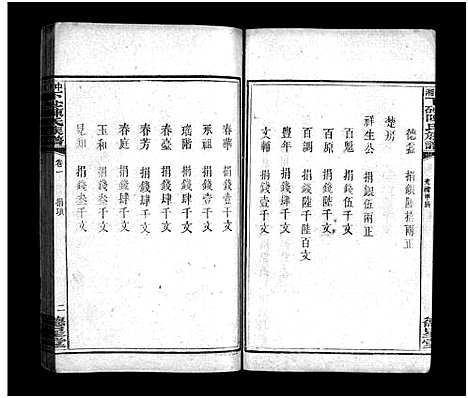 德益 捐銀陸拾兩正
楚房
祥生公 捐銀伍兩正
百順 捐錢伍千文
百原 捐錢陸千文
百調 捐錢陸千陸百文
豊年 捐錢肆千文
文輔 捐錢壹千文
春華 捐錢壹十千文
承祖 捐錢壹千文
瑤階 捐錢肆千文
春臺 捐錢肆千文
春芳 捐錢肆千文
春庭 捐錢肆千文
玉和 捐錢叁千文
見知 捐錢叁千文
卷一 捐項
二
德星堂
德星堂